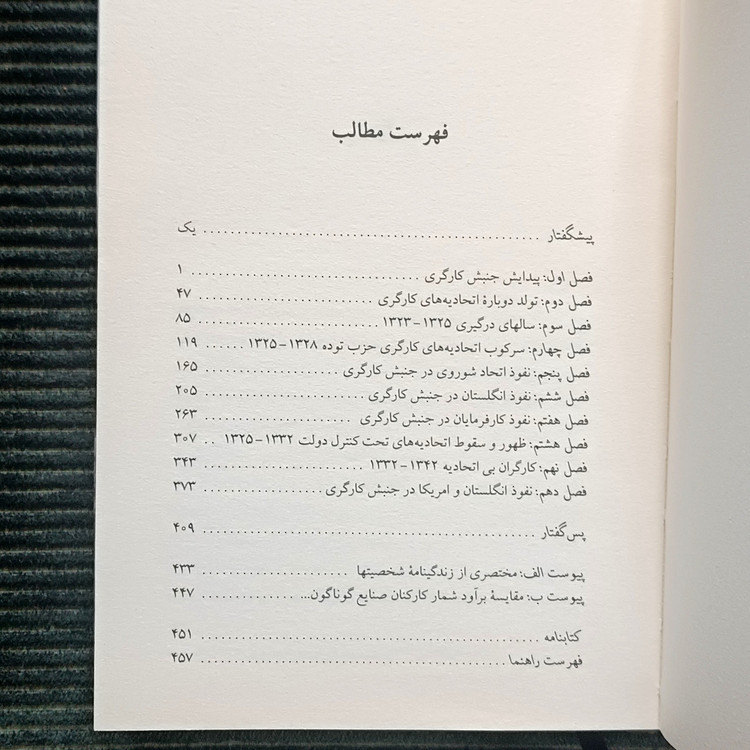 فهرست مطالب
پیشگفتار ........ یک
فصل اول: پیدایش جنبش کارگری ........ ۱
فصل دوم: تولد دوبارهٔ اتحادیه‌های کارگری ........ ۴۷
فصل سوم: سالهای درگیری ۱۳۲۵-۱۳۲۳ ........ ۸۵
فصل چهارم: سرکوب اتحادیه‌های کارگری حزب توده ۱۳۲۸-۱۳۲۵ ...... ۱۱۹
فصل پنجم: نفوذ اتحاد شوروی در جنبش کارگری ........ ۱۶۵
فصل ششم: نفوذ انگلستان در جنبش کارگری ........ ۲۰۵
فصل هفتم: نفوذ کارفرمایان در جنبش کارگری ........ ۲۶۳
فصل هشتم: ظهور و سقوط اتحادیه‌های تحت کنترل دولت ۱۳۳۲-۱۳۲۵ .. ۳۰۷
فصل نهم: کارگران بی اتحادیه ۱۳۴۲-۱۳۳۲ ........ ۳۴۳
فصل دهم: نفوذ انگلستان و امریکا در جنبش کارگری ........ ۳۷۳
پس‌گفتار ........ ۴۰۹
پیوست الف: مختصری از زندگینامهٔ شخصیتها ........ ۴۳۳
پیوست ب: مقایسهٔ برآورد شمار کارکنان صنایع گوناگون... ........ ۴۴۷
کتابنامه ........ ۴۵۱
فهرست راهنما ........ ۴۵۷